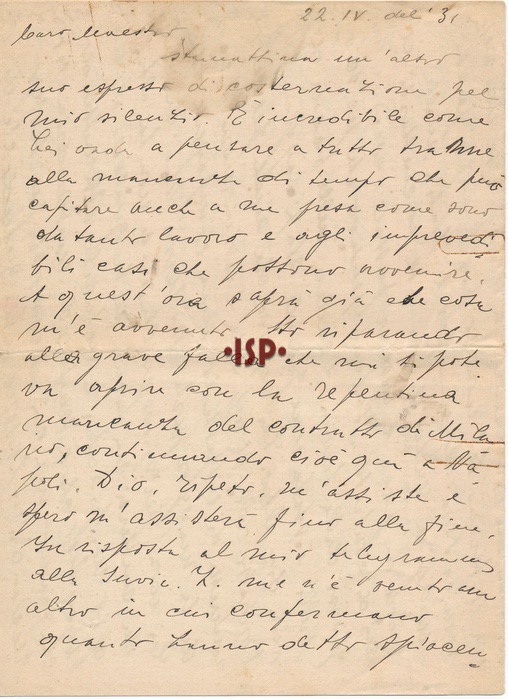 22.IV. del '31
Caro Maestro
Stamattina un'altro
suo espresso di costernazione pel
mio silenzio. È incredibile come
Lei vada a pensare a tutto tranne
alla mancanza di tempo che può
capitare anche a me presa come sono
da tanto lavoro e agli imprevedi
bili casi che possono avvenire.
A quest'ora saprà già che cosa
m'è avvenuto. Sto riparando
alla grave falla che mi si pote
va aprire con la repentina
mancanza del contratto di Mila
no, continuando cioè quà a Na
poli. Dio, ripeto, m'assiste e
spero m'assisterà fino alla fine.
In risposta al mio telegramma
alla Z. me n'è venuto un
altro in cui confermano
quanto hanno detto spiacen
·ISP·